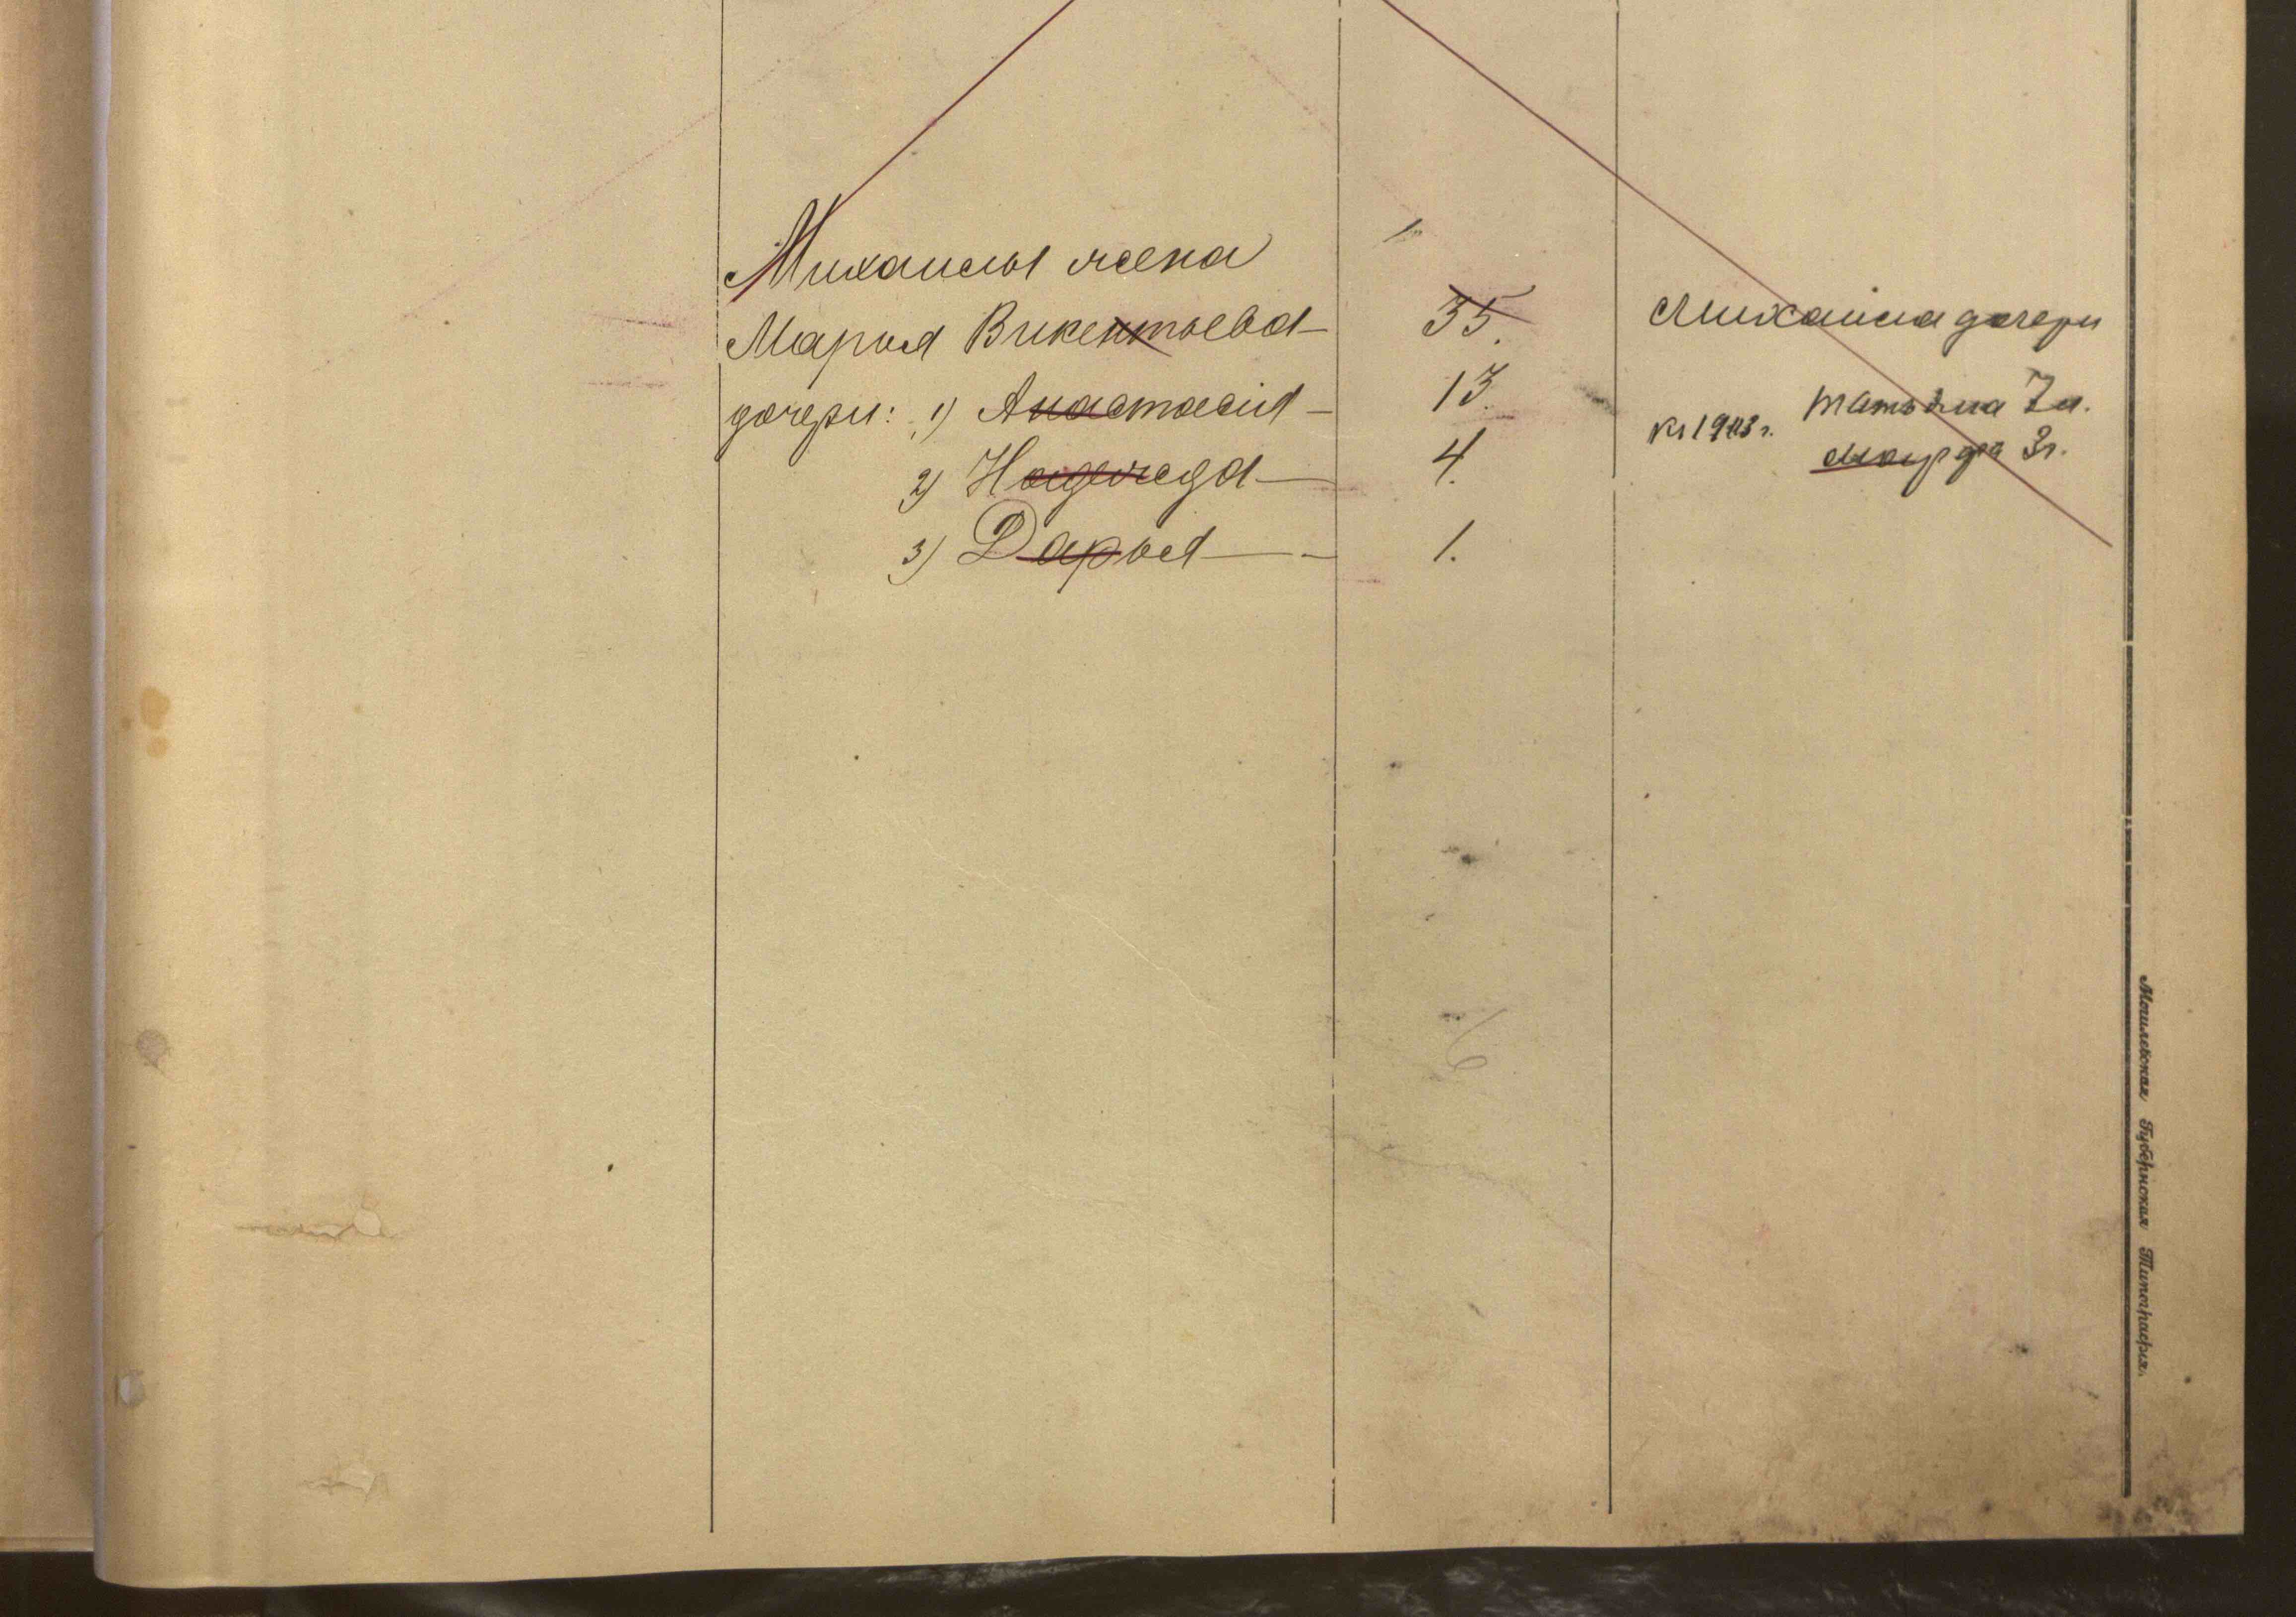 Михаилы жена
Марья Викентьева — 35.
дочери: 1) Анастасія — 13.
2) Надежда — 4.
3) Дарья — 1.
Михаила дочери
Татьяна 7 л.
къ 1903 г.
Марфа 3 г.
Могилевская Губернская Типографія.